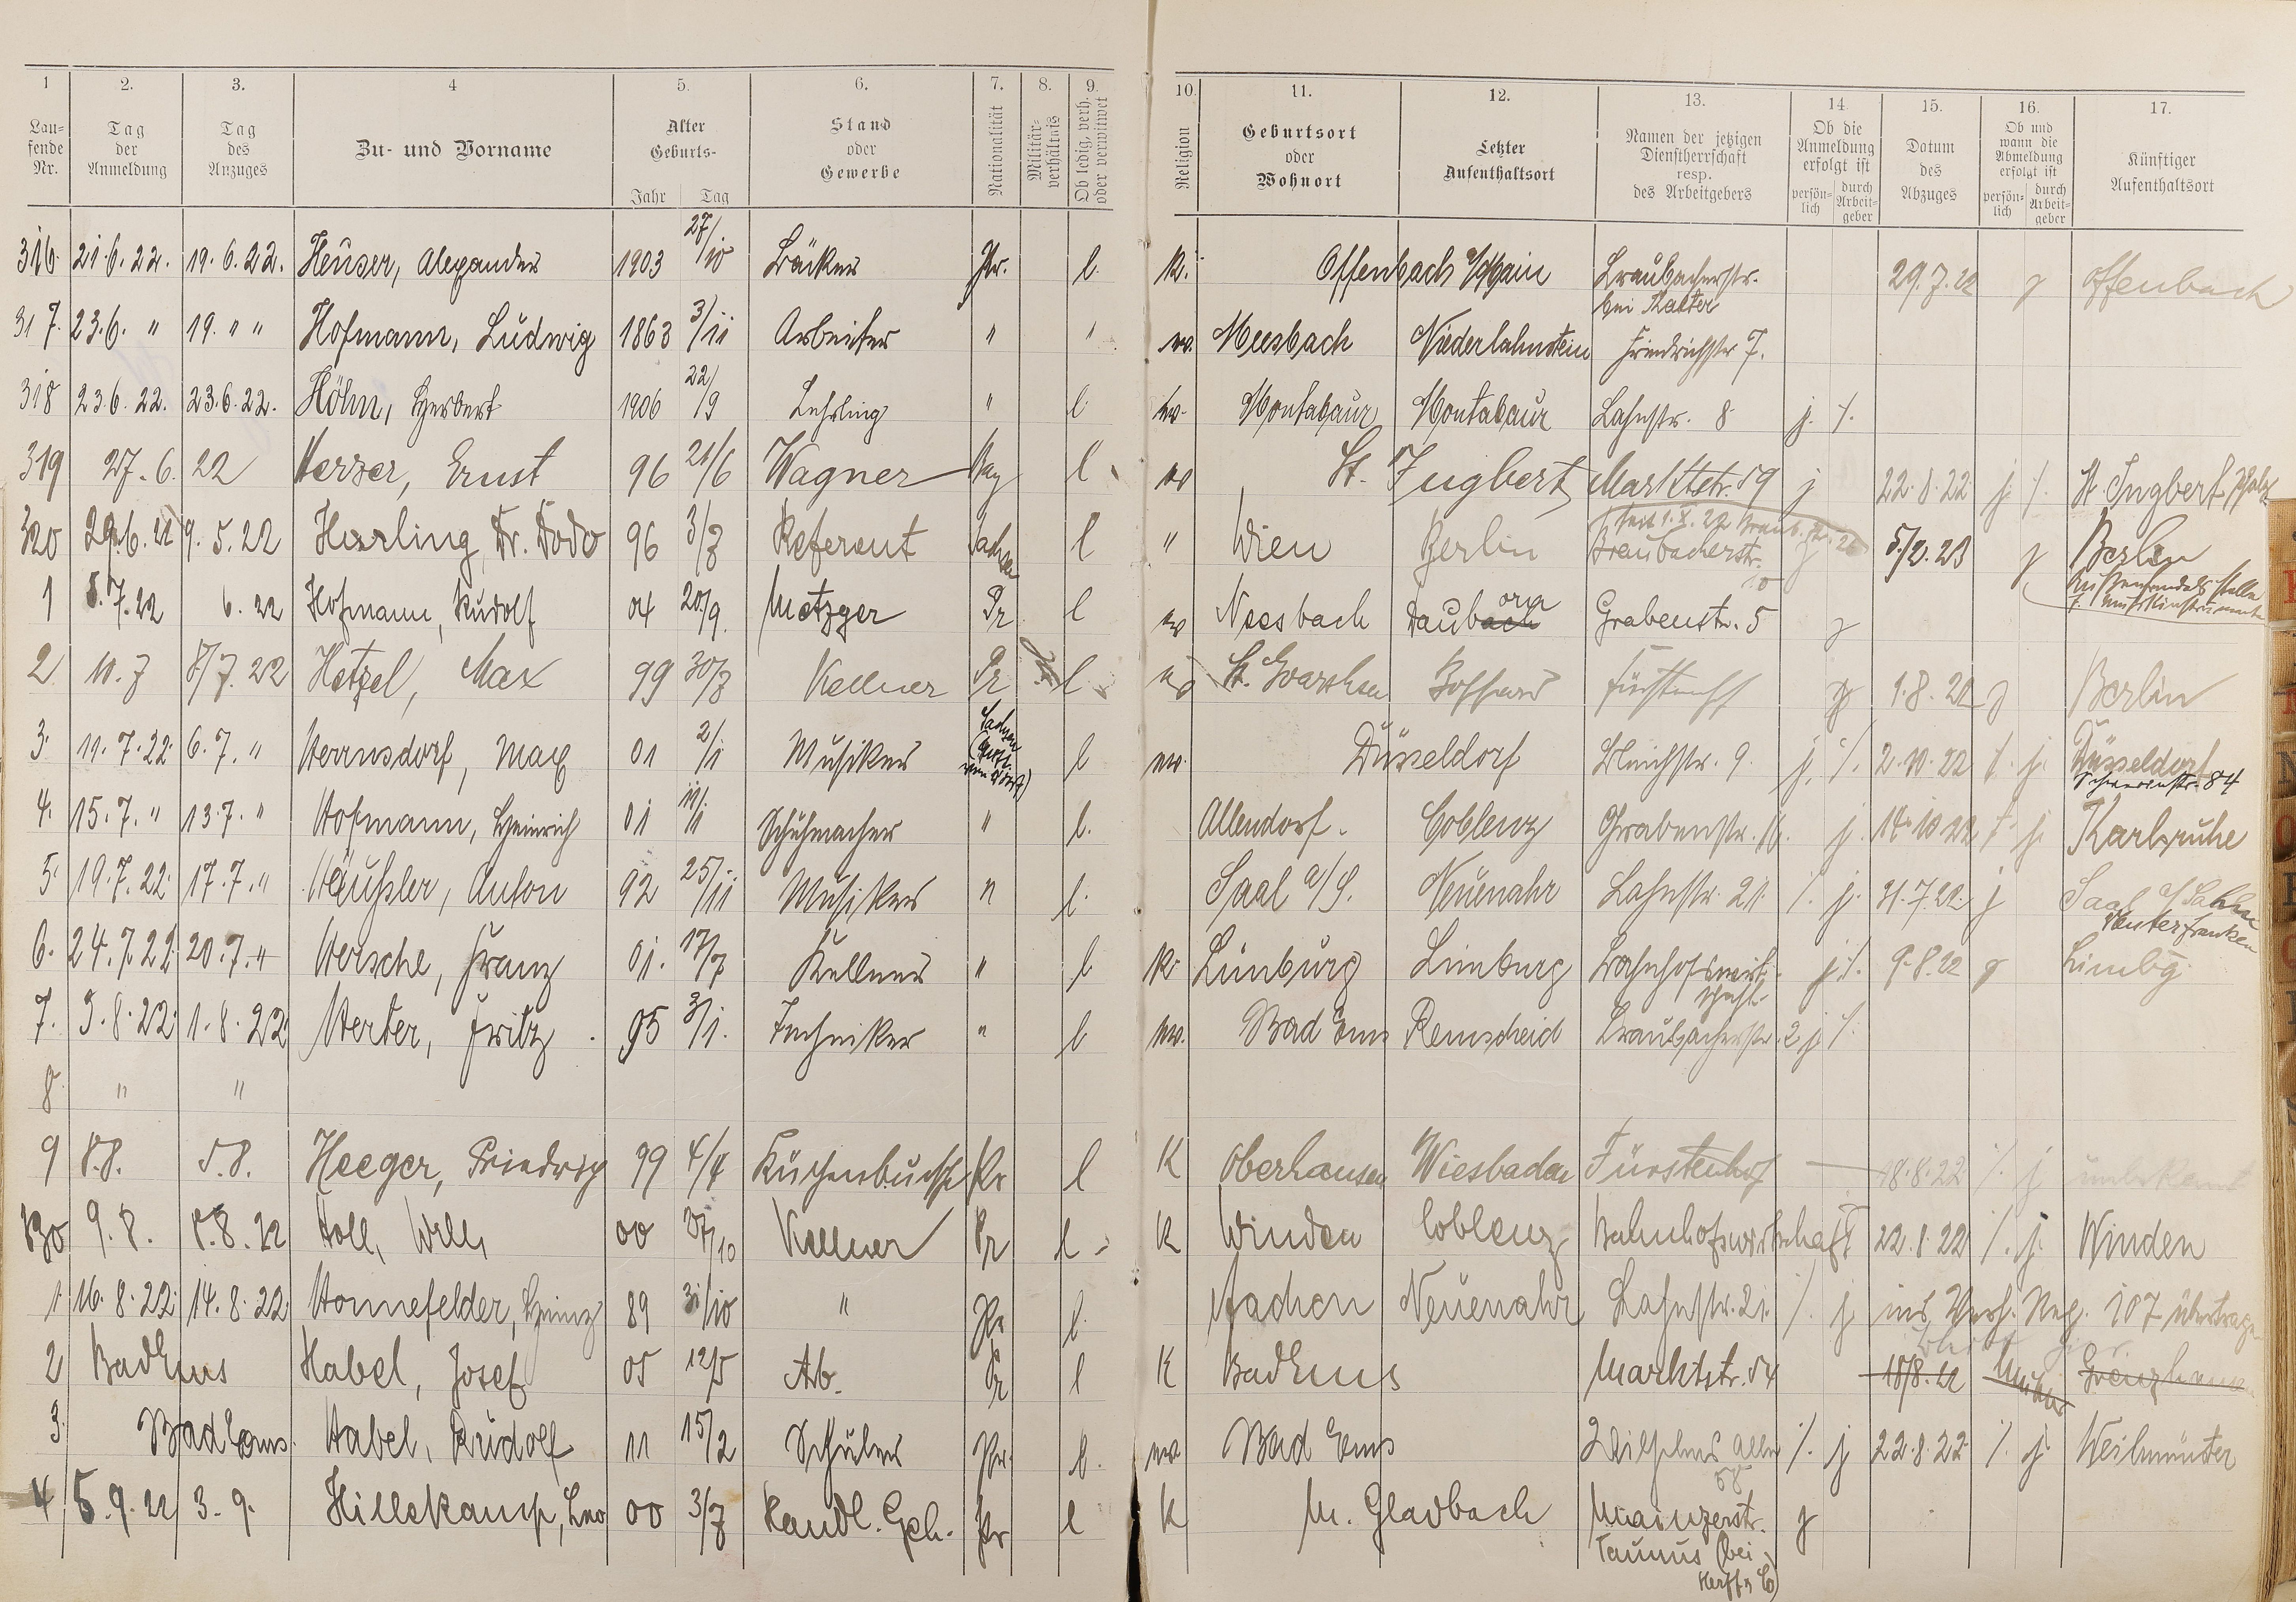 1 2. 3. 4 5. 6. 7. 8. 9. 10. 11. 12. 13. 14. 15. 16. 17.
Lau- fende Nr. Tag der Anmeldung Tag des Anzuges Zu- und Vorname Alter Geburts- Jahr Tag Stand oder Gewerbe Nationalität Militär- verhältnis Ob ledig, verh. oder verwitwet Religion Geburtsort oder Wohnort Letzter Aufenthaltsort Namen der jetzigen Dienstherrschaft resp. des Arbeitgebers Ob die Anmeldung erfolgt ist persön- lich durch Arbeit- geber Datum des Abzuges Ob und wann die Abmeldung erfolgt ist persön- lich durch Arbeit- geber Künftiger Aufenthaltsort
316. 21.6.22. 19.6.22. Heuser, Alexander 1903 27/10 Bäcker Pr. l. K. Offenbach a/Main Braubacherstr. bei 29.7.22 j Offenbach
317. 23.6. " 19. " " Hofmann, Ludwig 1863 3/11 Arbeiter " " ev. Meesbach Niederlahnstein Friedrichstr 7.
318 23.6.22. 23.6.22. Höhn, Herbert 1906 22/9 Lehrling " l. ev. Montabaur Montabaur Lahnstr. 8 j. ·/.
319 27.6.22 Herzer, Ernst 96 21/6 Wagner Bay l ev St. Ingbert Marktstr. 59 j 22.8.22 j ·/. St. Ingbert Pfalz
320 29.6.22 9.5.22 Harling, Dr. Dodo 96 3/8 Referent Sachsen l " Wien Berlin Braubacherstr. j 5/2.23 j Berlin
1 8.7.22 6.22 Hofmann, Rudolf 04 20/9. Metzger Pr l ev Neesbach Daubach Grabenstr. 5 j
2 10.7 8/7.22 Hetzel, Max 99 30/8 Kellner Pr l ev St. Goarshsn Boppard Fürstenhf j 1.8.22 j Berlin
3. 11.7.22 6.7. " Herrnsdorf, Max 01 2/1 Musiker Sachsen l ev. Düsseldorf Bleichstr. 9. j. ·/. 2.10.22 ·/. j. Düsseldorf
84
4. 15.7. " 13.7. " Hofmann, Heinrich 01 11/11 Schuhmacher " l. Allendorf. Coblenz Grabenstr. 16. j. 14.10.22 ·/. j. Karlsruhe
5. 19.7.22. 17.7. " Häußler, Anton 92 25/11 Musiker " l. Saal a/S. Neuenahr Lahnstr. 21. ·/. j. 31.7.22. j Saal a/Saale
Unterfranken
6. 24.7.22. 20.7. " Hersche, Franz 01. 17/7 Kellner " l. K. Limburg Limburg Bahnhofswirt- schft. j. ·/. 9.8.22 j Limbg.
7. 3.8.22. 1.8.22. Herter, Fritz 95 3/1. Techniker " l ev. Bad Ems Remscheid Braubacherstr. 2 j ·/.
8 " "
9 8.8. 5.8. Heeger, Friedrich 99 4/4 Küchenbursche Pr l K Oberhausen Wiesbaden Fürstenhof 18.8.22 ·/. j unbekannt
330 9.8. 8.8.22 Holl, Willi 00 27/10 Kellner Pr l K Winden Coblenz Bahnhofswirtschaft 22.8.22 ·/. j. Winden
1. 16.8.22. 14.8.22. Honnefelder, Heinz 89 31/10 " Pr l. Aachen Neuenahr Lahnstr. 21. ·/. j ins Verh. Reg. 107 übertragen
2 Bad Ems Habel, Josef 05 12/5 Arb. Pr l K Bad Ems Marktstr. 54 18/8.22 Grenzhausen
3. Bad Ems. Habel, Rudolf 11 15/2 Schüler Pr. l. ev. Bad Ems Wilhelms allee 58 ·/. j 22.8.22 ·/. j. Weilmünster
4 5.9.22 3.9. Hillekamp, Leo 00 3/8 Handl. Geh. Pr l K M. Gladbach Mainzerstr. j
Taunus (bei